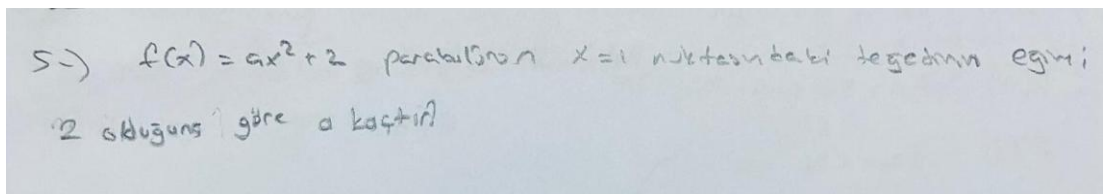 5-) f(x) = ax² + 2 parabolünün x=1 noktasındaki teğetinin eğimi
2 olduğuna göre a kaçtır?